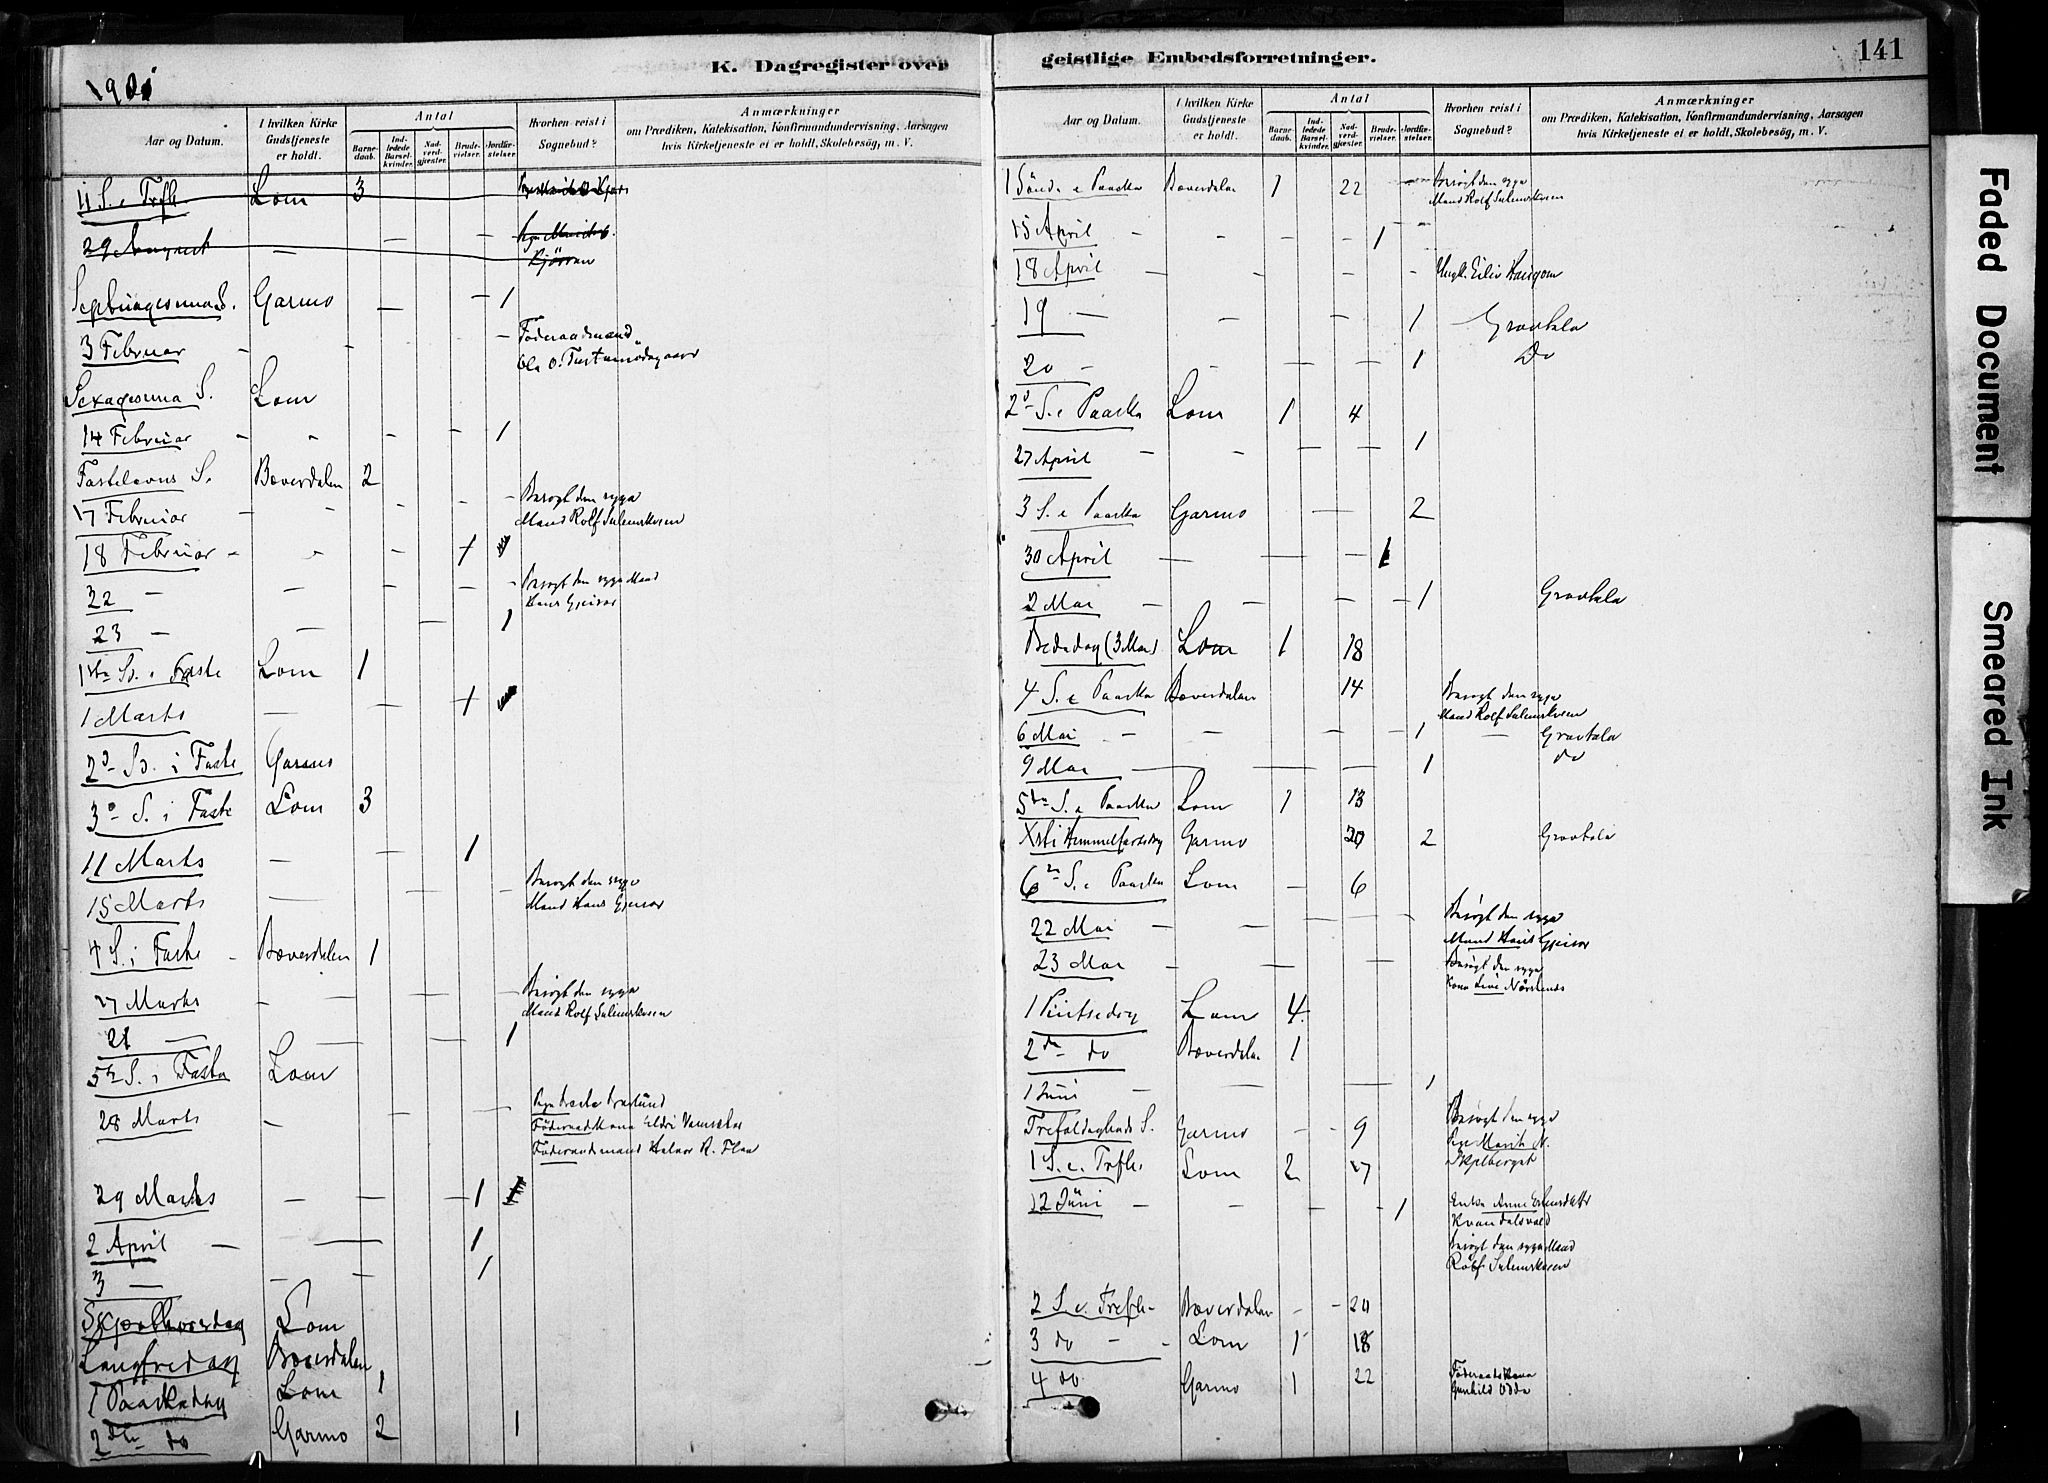 K. Dagregister over
1901
Aar og Datum.
I hvilken Kirke Gudstjeneste er holdt.
Antal
Barnedaab.
Indledede Barselkvinder.
Nadverdgjæster.
Brudevielser.
Jordfæstelser.
Hvorhen reist i Sognebud?
Anmærkninger
om Prædiken, Katekisation, Konfirmandundervisning, Aarsagen
hvis Kirketjeneste ei er holdt, Skolebesøg, m. V.
11 S. e Trfh. Lom 3
29 August —
Kjörren
Septuagesima S. Garmo — — 1
3 Februar - - — Föderaadsmand
Ola O.
Sexagesima S. Lom
14 Februar - - - - 1
Fastelavns S. Bæverdalen 2
17 Februar - - - - - Besögt den syge
Mand Rolf Sulemskveen
18 Februar - - - 1
22 — — - - - - Besögt den syge Mand
Hans Gjeisar
23 — — — 1
1ste S. i Faste Lom 1
1 Marts — - 1
2d S. i Faste Garmo
3d S. i Faste Lom 3
11 Marts — 1
15 Marts — — - Besögt den syge
Mand Hans Gjeisar
4 S. i Faste - Bæverdalen 1
17 Marts - — — - Besögt den syge
Mand Rolf Sulemskveen
21 — — — 1
5te S. i Faste Lom
28 Marts - - —
Föderaadskona Eldri
Föderaadsmand Halvor R. Flaa
29 Marts — — - 1
2 April — — 1
3 — — - 1
Skjærthorsdag Lom
Langfredag Bæverdalen
1 Paaskedag Lom 1
2den do Garmo 2 1
geistlige Embedsforretninger.
141
Aar og Datum.
I hvilken Kirke Gudstjeneste er holdt.
Antal
Barnedaab.
Indledede Barselkvinder.
Nadverdgjæster.
Brudevielser.
Jordfæstelser.
Hvorhen reist i Sognebud?
Anmærkninger
om Prædiken, Katekisation, Konfirmandundervisning, Aarsagen
hvis Kirketjeneste ei er holdt, Skolebesøg, m. V.
1 Sönd. e Paaske Bæverdalen 1 22 — Besögt den syge
Mand Rolf Sulemskveen
15 April — - - - 1
18 April — - - - - Ungk. Eiliv
19 — - - 1 — Gravtale
20 - - — — 1 Do
2d S. e Paaske Lom 1 4
27 April - - — — 1
3 S. e Paaske Garmo — 2
30 April — — - 1
2 Mai — — — - 1 Gravtale
Bededag (3 Mai) Lom 1 18
4 S. e Paaske Bæverdalen 14 Besögt den syge
Mand Rolf Sulemskveen
6 Mai - — — - - 1 — Gravtale
9 Mai — — — 1 do
5te S. e Paaske Lom 1 13
Xsti Himmelfartsdag Garmo 20 2 Gravtale
6te S. e Paaske Lom — 6
22 Mai — — — — Besögt den syge
Mand Hans Gjeisar
23 Mai - — — Besögt den syge
Kona
1 Pintsedag Lom 4
2den do Bæverdalen 1
1 Juni - — — 1
Trefoldigheds S. Garmo - - 9 Besögt den syge
Marit N.
1 S. e. Trfh. Lom 2 17
12 Juni - - - — 1 Enke Anne
Besögt den syge Mand
Rolf Sulemskveen
2 S. e. Trefh- Bæverdalen - - 20
3 do - - Lom 1 18
4 do Garmo 1 22 Föderaadskona
Gunhild Odde
Faded Document
Smeared Ink